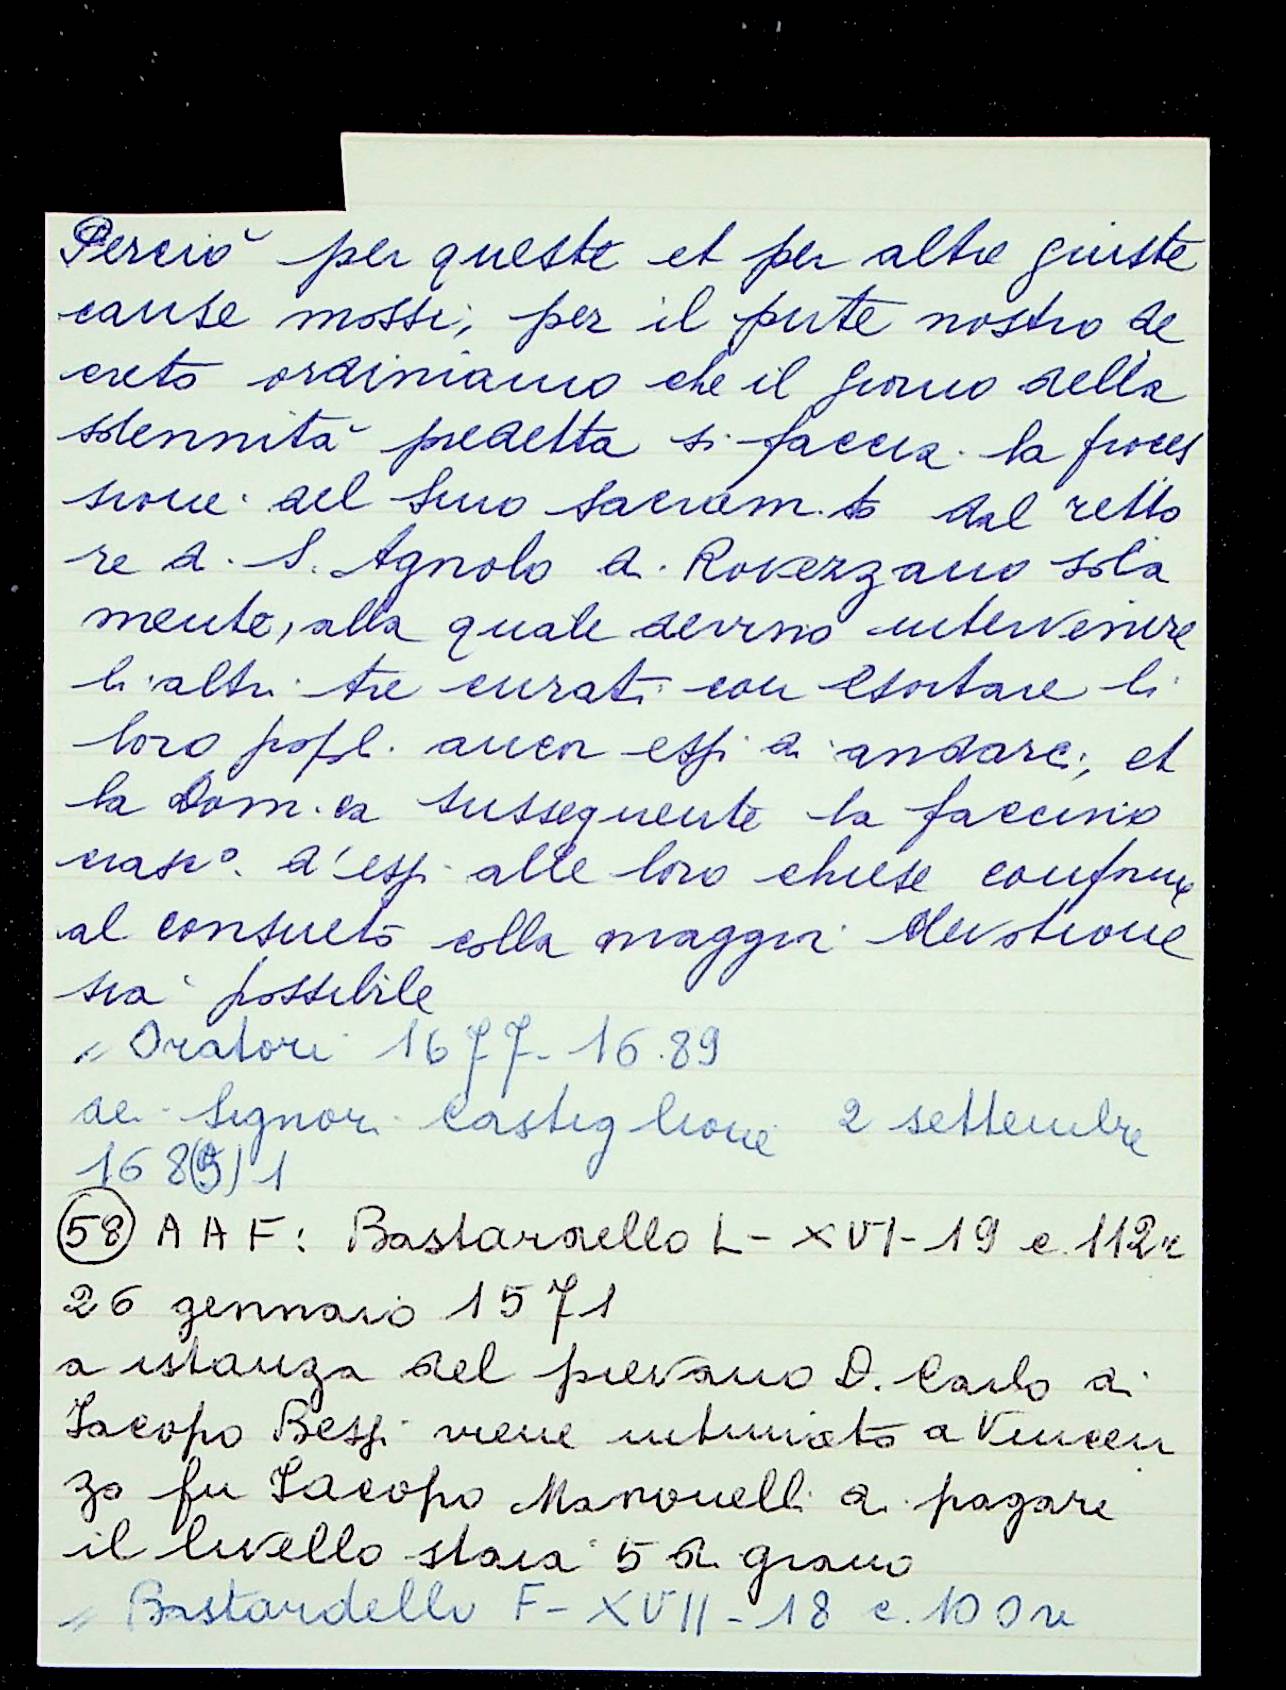 Perciò per queste et per altre giuste
cause mossi, per il pnte nostro de
creto ordiniamo che il giorno della
solennità predetta si faccia la proces
sione del Smo Sacram.to dal retto
re di S. Agnolo a Rovezzano sola
mente, alla quale devino intervenire
li altri tre curati con esortare li
loro popl. ancor essi di andarci, et
la Dom.ca susseguente la faccino
ciasc°. d'essi alle loro chiese conforme
al consueto colla maggior devotione
sia possibile
" Oratori 1677-1689
dei Signori Castiglioni 2 settembre
168(5) 1
(58) A A F: Bastardello L-XVI-19 c.112r
26 gennaio 1571
a istanza del pievano D. Carlo di
Iacopo Bessi viene intimato a Vincen
zo fu Iacopo Mannelli di pagare
il livello staia 5 di grano
" Bastardello F-XVII-18 c.100r